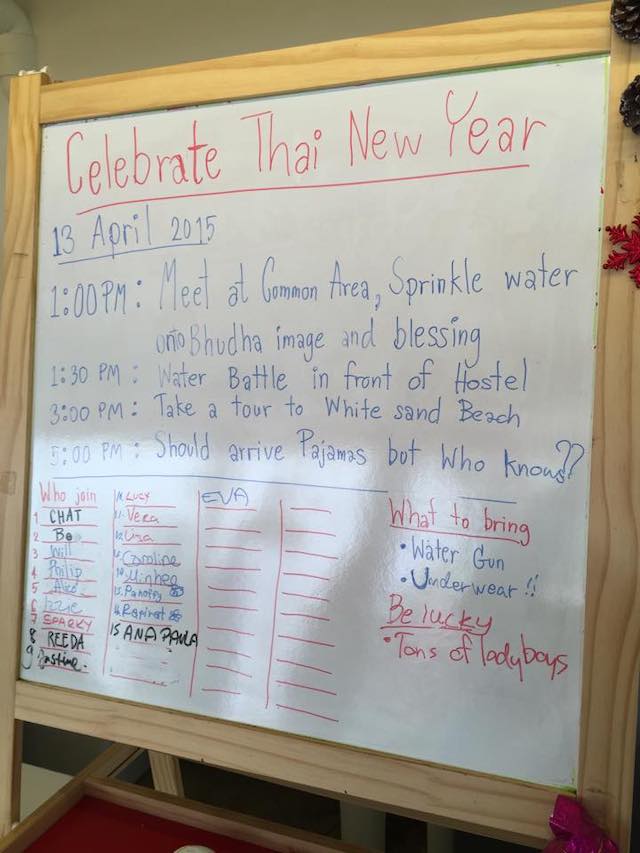 Celebrate Thai New Year
13 April 2015
1:00PM: Meet at Common Area, Sprinkle water
onto Bhudha image and blessing
1:30 PM: Water Battle in front of Hostel
3:00 PM: Take a tour to White sand Beach
5:00 PM: Should arrive Pajamas but Who knows??
Who join
1 CHAT
2 Bo
3 Will
4 Philip
5
6 Izzie
7 SPARKY
8 REEDA
9
LUCY
Vera
Caroline
Minhee
15 ANA PAULA
EVA
What to bring
• Water Gun
• Underwear!!
Be lucky
• Tons of ladyboys